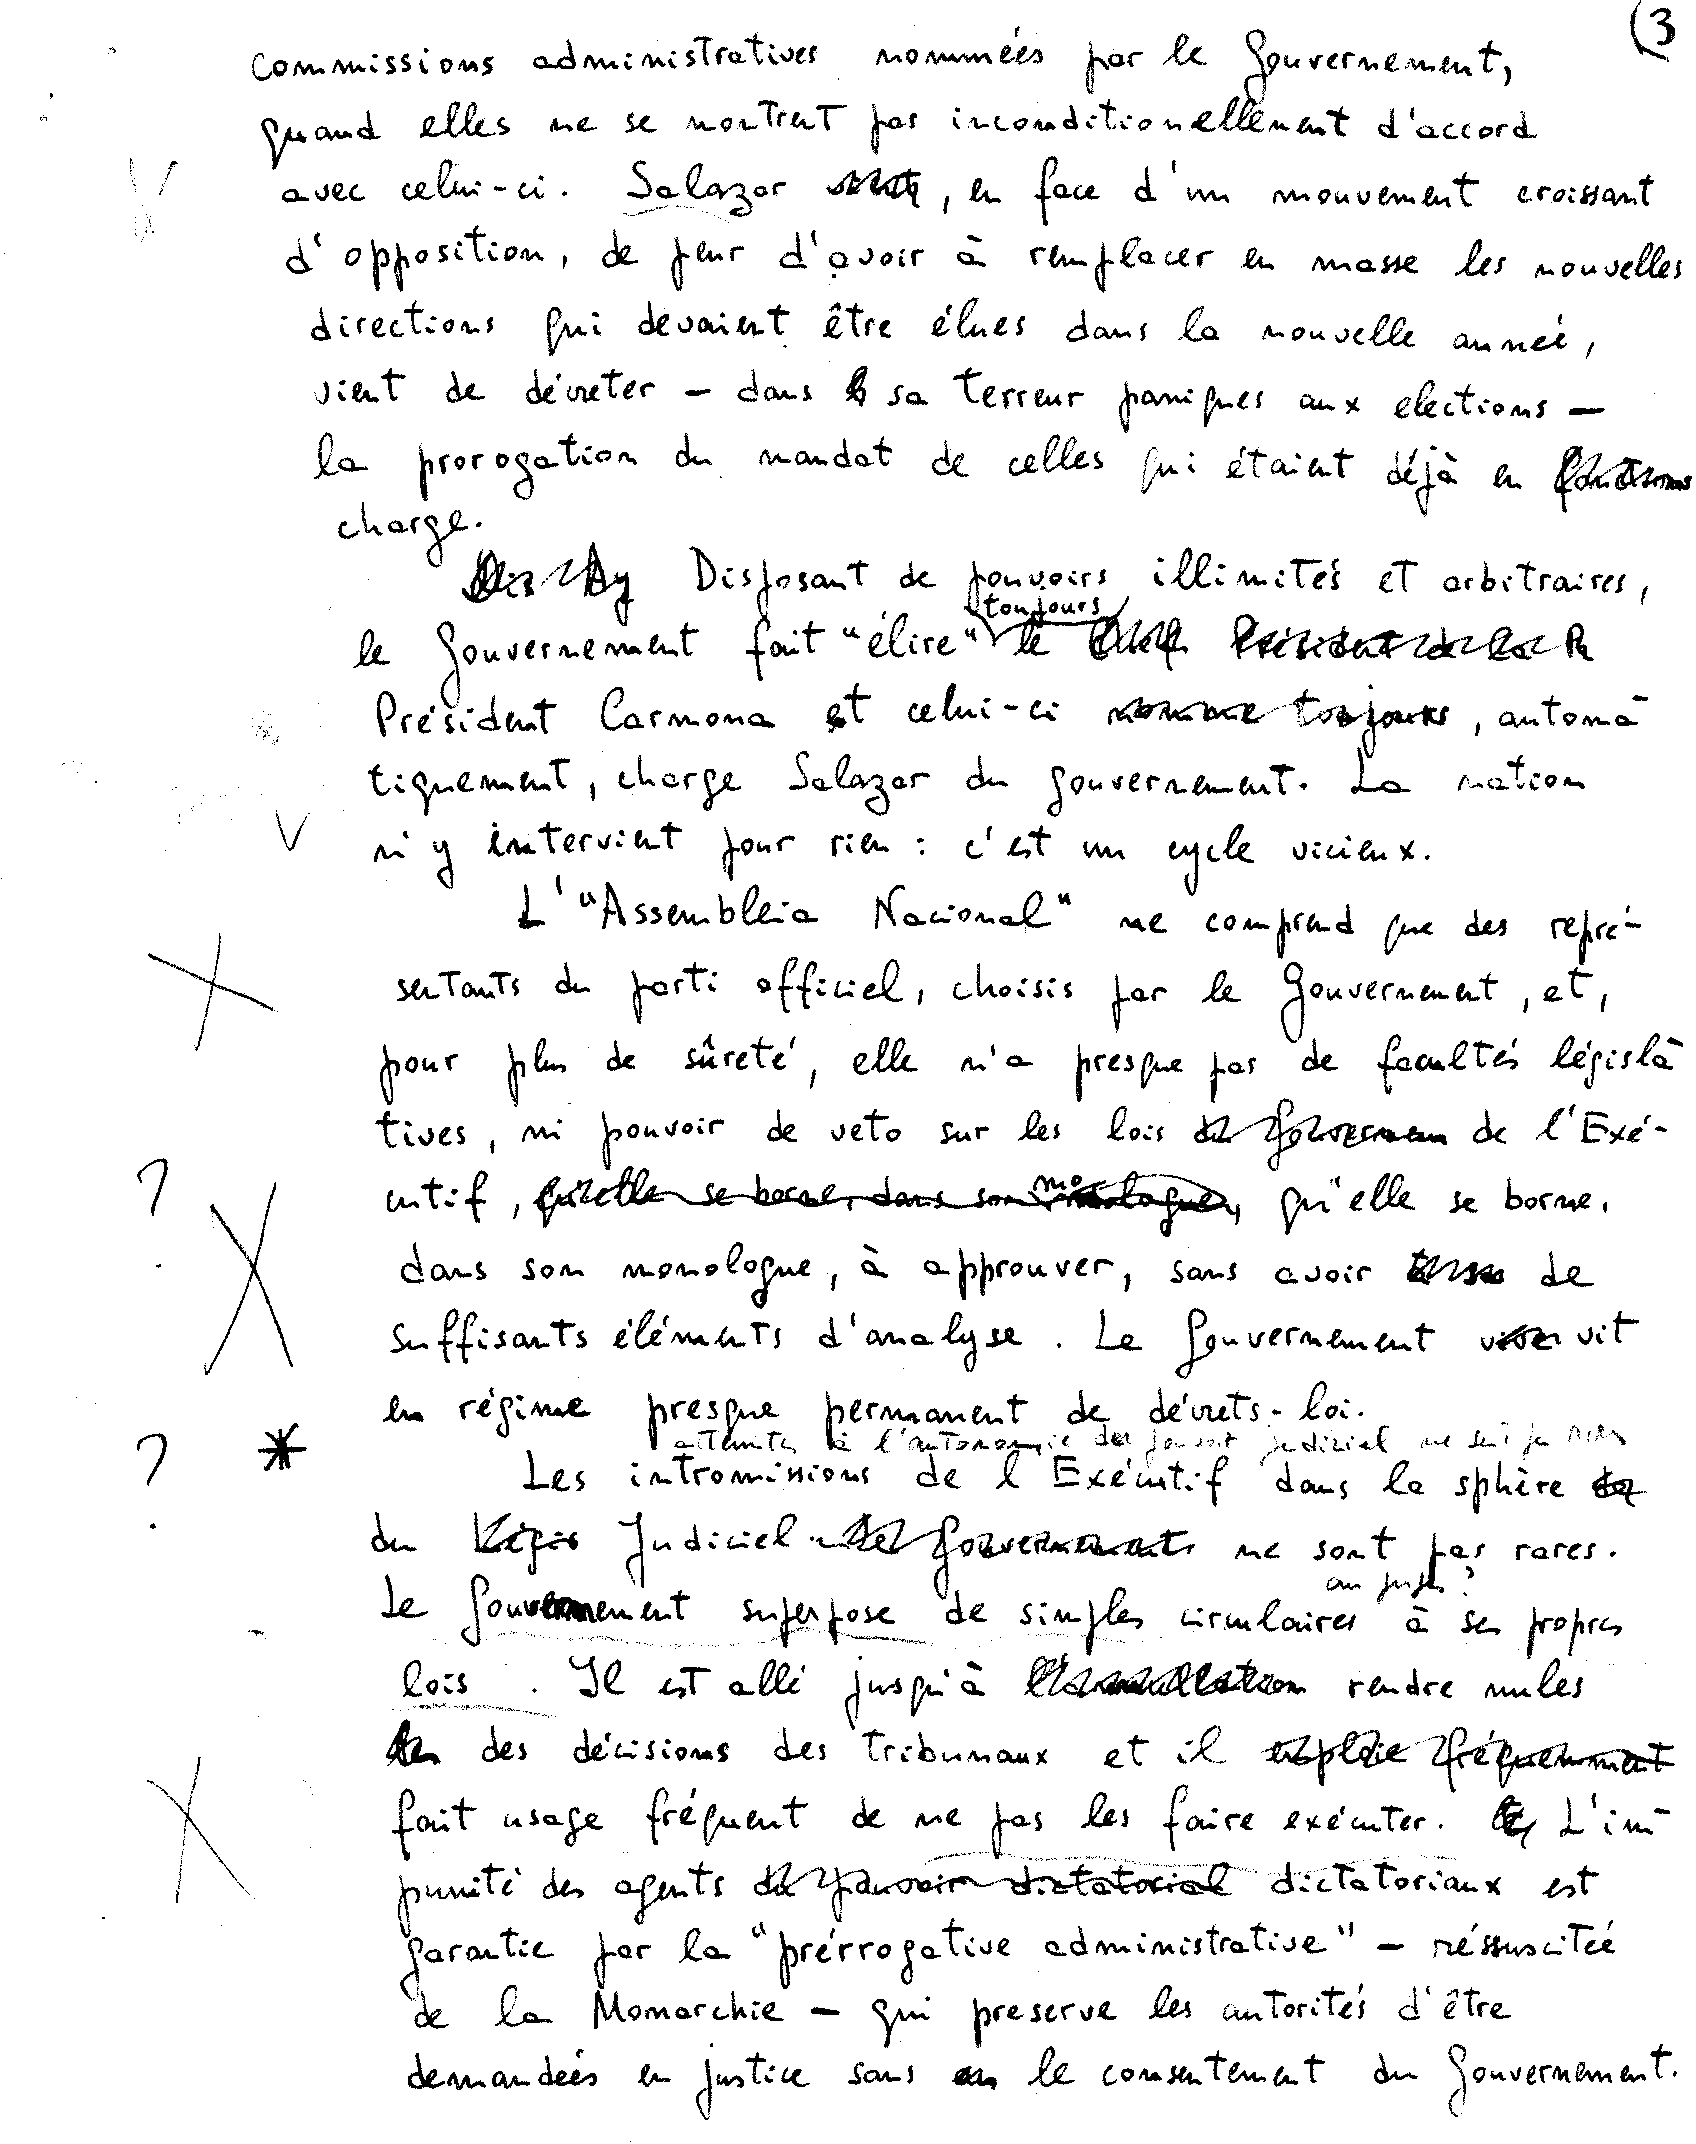 (3
commissions administratives nommées par le Gouvernement,
quand elles ne se montrent pas inconditionellement d'accord
avec celui-ci. Salazar , en face d'un mouvement croissant
d'opposition, de peur d'avoir à remplacer en masse les nouvelles
directions qui devaient être élues dans la nouvelle année,
vient de décreter — dans sa terreur paniques aux elections —
la prorogation du mandat de celles qui étaient déjà en fonctions
charge.
Disposant de pouvoirs illimités et arbitraires,
toujours
le Gouvernement fait "élire" le Chef Président de la R
Président Carmona et celui-ci nomme toujours, automa-
tiquement, charge Salazar du gouvernement. La nation
n'y intervient pour rien : c'est un cycle vicieux.
L'"Assembleia Nacional" ne comprend que des repré-
sentants du parti officiel, choisis par le Gouvernement, et,
pour plus de sûreté, elle n'a presque pas de facultés législa-
tives, ni pouvoir de veto sur les lois du Gouvernem de l'Exé-
cutif, qu'elle se borne, dans son monologue, qu'elle se borne,
dans son monologue, à approuver, sans avoir de
suffisants éléments d'analyse. Le Gouvernement vit
en régime presque permanent de décrets-loi.
atteintes à l'autonomie du pouvoir judiciel ne sont pas rares
Les intromissions de l'Exécutif dans la sphère de
du Légis Judiciel. Le Gouvernement ne sont pas rares.
au juges?
Le Gouvernement superpose de simples circulaires à ses propres
lois . Il est allé jusqu'à l'annullation rendre nules
les des décisions des tribunaux et il emploie fréquemment
fait usage fréquent de ne pas les faire exécuter. L'im-
punité des agents du pouvoir dictatorial dictatoriaux est
garantie par la "prérrogative administrative" — réssuscitée
de la Monarchie — qui preserve les autorités d'être
demandées en justice sans le consentement du Gouvernement.